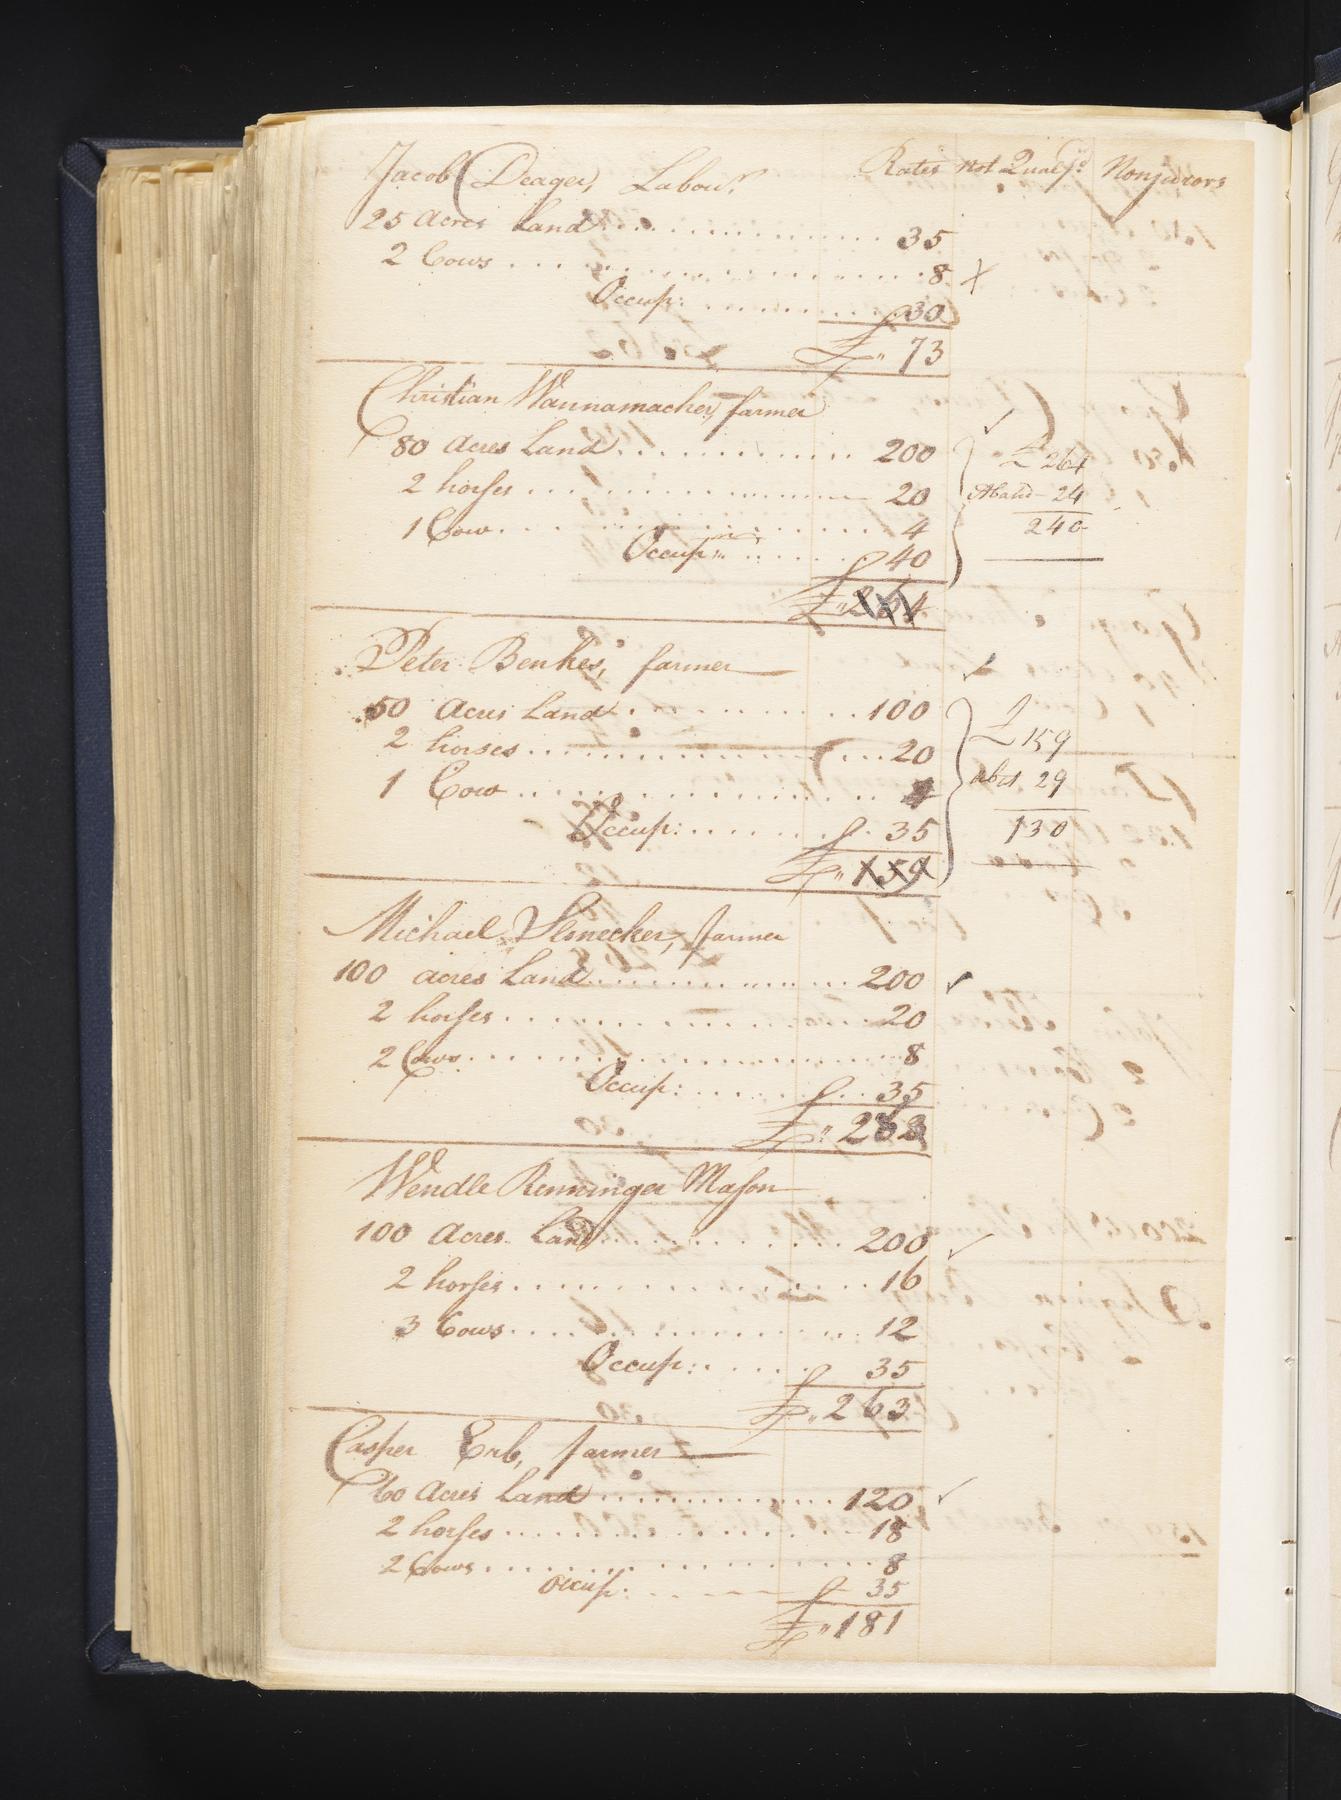 Jacob Deager, Labour. Rates Not Qualfd. Nonjurors
25 Acres Land 35
2 Cows 8 X
Occup: 30
£" 73
Christian Wannamacher, farmer
80 Acres Land 200 £ 264
2 horses 20 Abatd - 24
1 Cow 4 240
Occup: 40
£" 264
Peter Benkes, farmer
50 Acres Land 100
2 horses 20 £ 159
1 Cow 4 abd 29
Occup: 35 130
£" 159
Michael Slonecker, farmer
100 acres Land 200
2 horses 20
2 Cows 8
Occup: 35
£" 263
Wendle Renninger Mason
100 Acres Land 200
2 horses 16
3 Cows 12
Occup: 35
£" 263
Casper Erb, farmer
60 Acres Land 120
2 horses 18
2 Cows 8
Occup: 35
£" 181